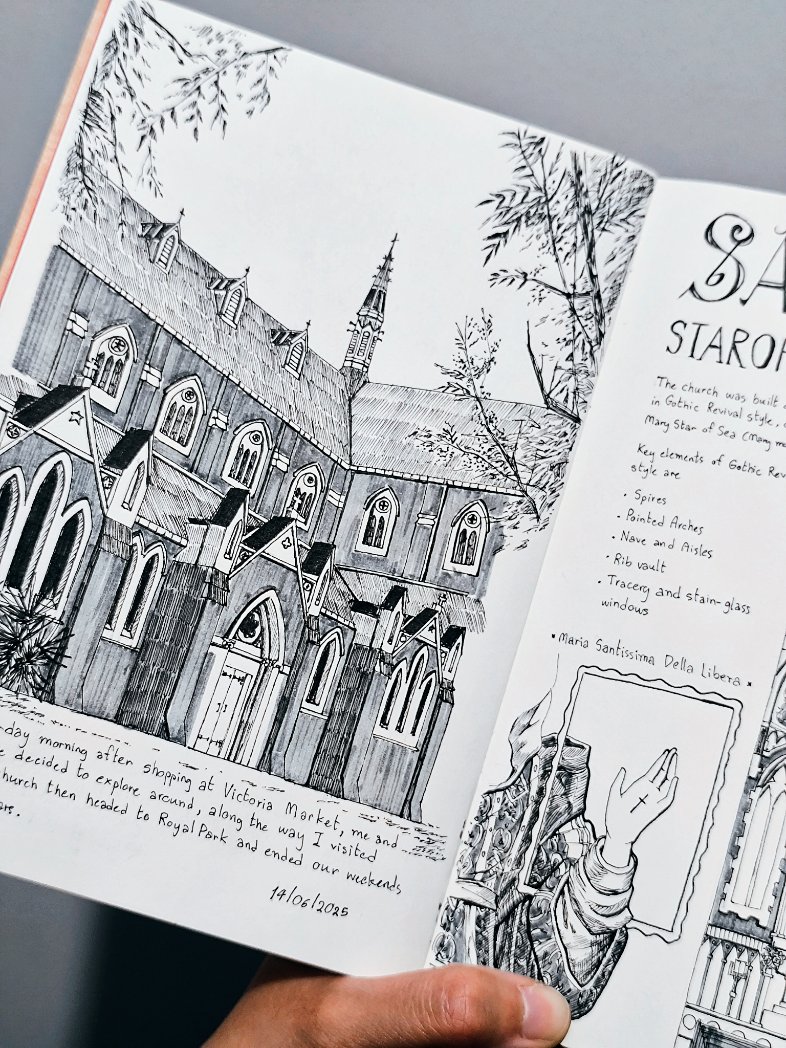 -day morning after shopping at Victoria Market, me and
decided to explore around, along the way I visited
church then headed to Royal Park and ended our weekends
14/06/2025
SA
STAROF
The church was built
in Gothic Revival style,
Mary Star of Sea (Mary
Key elements of Gothic Rev
style are
• Spires
• Pointed Arches
• Nave and Aisles
• Rib vault
• Tracery and stain-glass
windows
• Maria Santissima Della Libera •